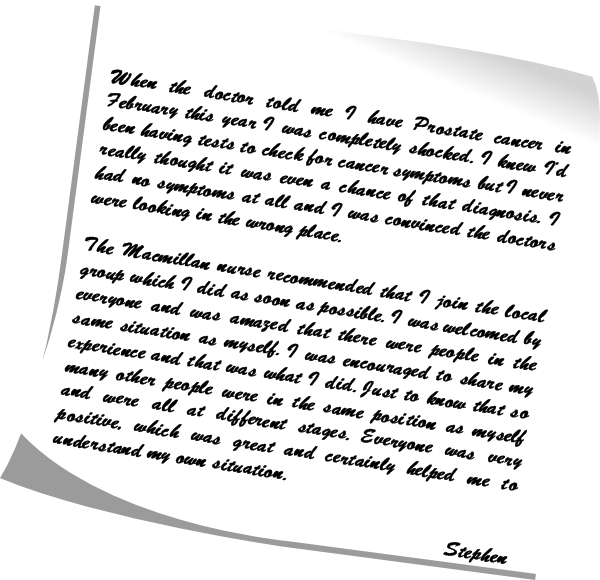 When the doctor told me I have Prostate cancer in
February this year I was completely shocked. I knew I'd
been having tests to check for cancer symptoms but I never
really thought it was even a chance of that diagnosis. I
had no symptoms at all and I was convinced the doctors
were looking in the wrong place.
The Macmillan nurse recommended that I join the local
group which I did as soon as possible. I was welcomed by
everyone and was amazed that there were people in the
same situation as myself. I was encouraged to share my
experience and that was what I did. Just to know that so
many other people were in the same position as myself
and were all at different stages. Everyone was very
positive, which was great and certainly helped me to
understand my own situation.
Stephen